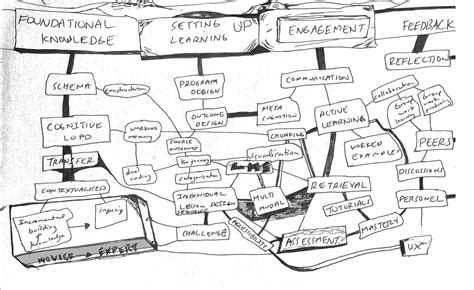 FOUNDATIONAL
KNOWLEDGE
SETTING UP
LEARNING
ENGAGEMENT
FEEDBACK
REFLECTION
SCHEMA
constructivism
PROGRAM
DESIGN
COMMUNICATION
COGNITIVE
LOAD
working
memory
OUTCOME
DESIGN
META
COGNITION
ACTIVE
LEARNING
collaboration
Group
work
learning
Group
work
TRANSFER
dual
coding
COURSE
OUTCOMES
categorisation
CHUNKING
visualisation
LMS
WORKED
EXAMPLES
PEERS
CONTEXTUALISED
INDIVIDUAL
LESSON DESIGN
MULTI
MODAL
RETRIEVAL
DISCUSSIONS
Incremental
building of
knowledge
inquiry
TUTORIALS
PERSONEL
CHALLENGE
ACCESSIBILITY
ASSESSMENT
MASTERY
UX
NOVICE → EXPERT